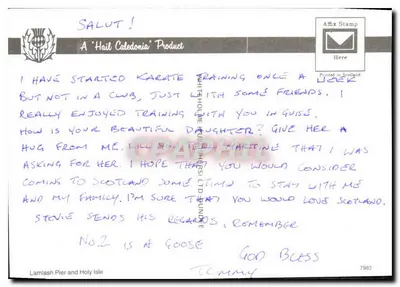 SALUT!
A "Hail Caledonia" Product
Affix Stamp
Here
Printed in Scotland
I HAVE STARTED KARATE TRAINING ONCE A WEEK
BUT NOT IN A CLUB, JUST WITH SOME FRIENDS. I
REALLY ENJOYED TRAINING WITH YOU IN
HOW IS YOUR BEAUTIFUL DAUGHTER? GIVE HER A
HUG FROM ME. MARTINE THAT I WAS
ASKING FOR HER. I HOPE THAT YOU WOULD CONSIDER
COMING TO SCOTLAND SOME TO STAY WITH ME
AND MY FAMILY. I'M SURE THAT YOU WOULD LOVE SCOTLAND.
STOVIE SENDS HIS REGARDS, REMEMBER
No2 IS A GOOSE
GOD BLESS
TOMMY
WHITEHOLME (DUNDEE) LTD DUNDEE
Lamlash Pier and Holy Isle
7980